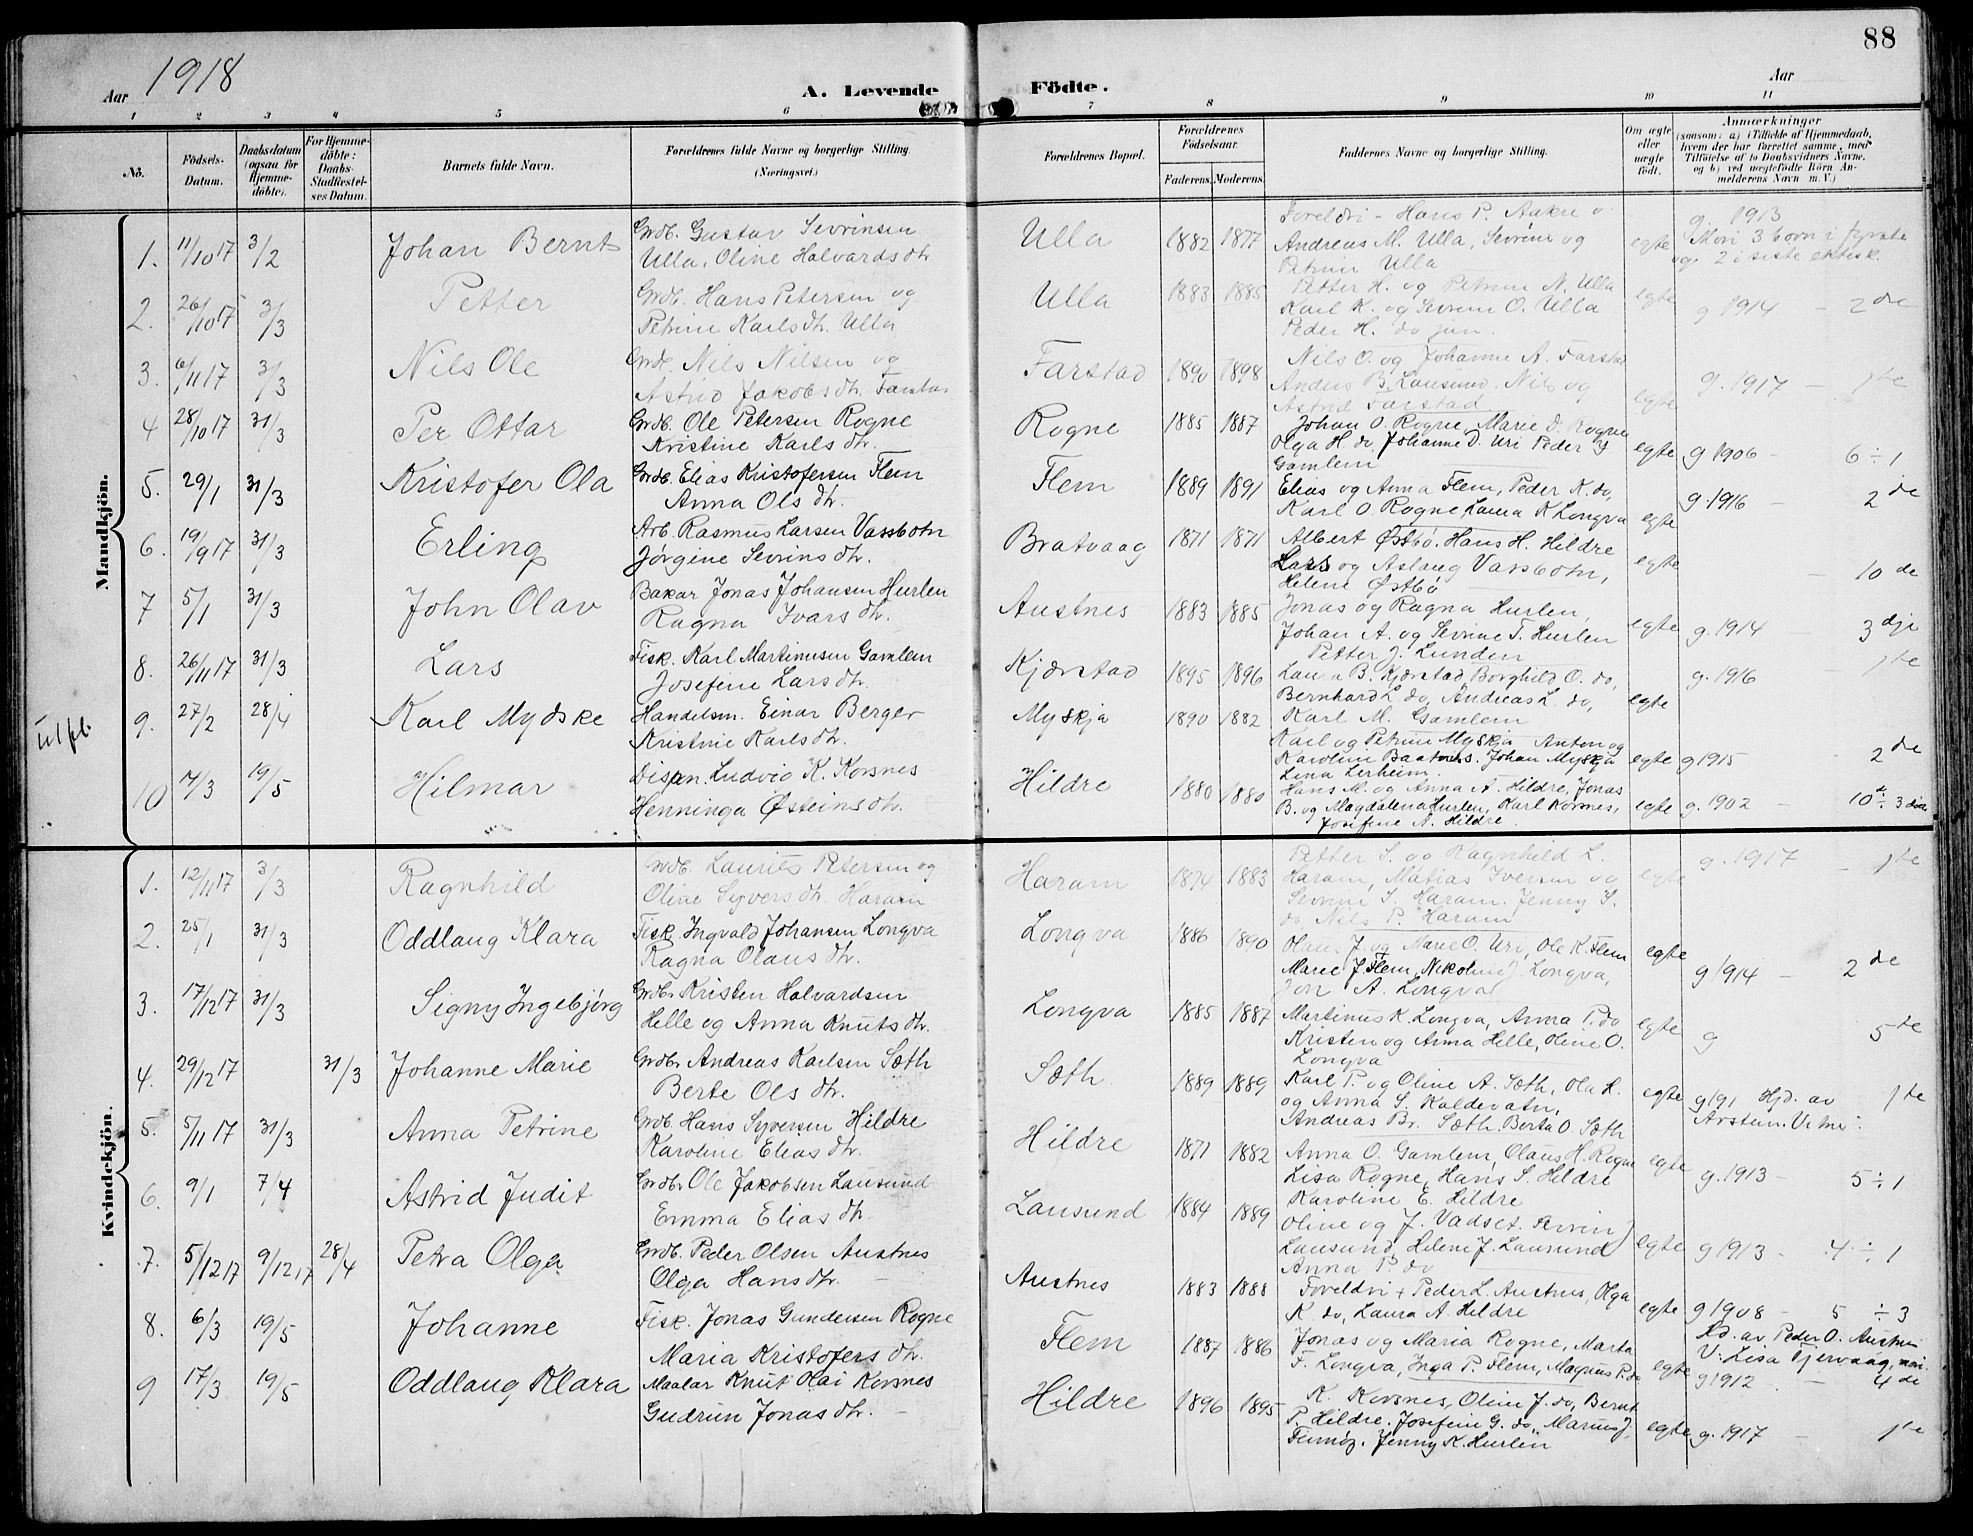 88
Aar 1918
A. Levende Födte.
Aar
1 2 3 4 5 6 7 8 9 10 11
No.
Födsels-Datum.
Daabsdatum (ogsaa for Hjemme-döbte).
For Hjemme-döbte: Daabs-Stadfæstel-ses Datum.
Barnets fulde Navn.
Forældrenes fulde Navne og borgerlige Stilling (Næringsvei.)
Forældrenes Bopæl.
Forældrenes Födselsaar.
Faderens. Moderens.
Faddernes Navne og borgerlige Stilling.
Om ægte eller uægte födt.
Anmærkninger
(saasom: a) i Tilfælde af Hjemmedaab, hvem der har forrettet samme, med Tilföielse af to Daabsvidners Navne. og b) ved uægtefödte Börn An-melderens Navn m. V.)
Mandkjön.
1. 11/10 17 3/2 Johan Bernt Grdb. Gustav Sevrinsen Ulla, Oline Halvards dtr. Ulla 1882 1877 Foreldri - Hans P. Aakre o Andreas M. Ulla, Sevrine og Petrine Ulla egte g. 1913 Mori 3 born i fyrste og 2 i siste ektesk.
2. 26/10 17 3/3 Petter Grdb. Hans Petersen og Petrine Karls dtr. Ulla Ulla 1883 1885 Petter H. og Petrine N. Ulla Karl K. og Sevrine O. Ulla Peder H. do jun. egte g 1914 - 2 de
3. 6/11 17 3/3 Nils Ole Grdb. Nils Nilsen og Astrid Jakobs dtr. Farstad Farstad 1890 1898 Nils O. og Johanne A. Farstad Anders B. Lausund. Nils og Astrid Farstad egte g. 1917 - 1 te
4 28/10 17 31/3 Per Ottar Grdb. Ole Petersen Rogne Kristine Karls dtr. Rogne 1885 1887 Johan O. Rogne, Marie D. Rogne Olga H. do Johanne D. Uri Peder J. Gamlem egte g 1906 - 6 ÷ 1
5. 29/1 31/3 Kristofer Ola Grdb. Elias Kristofersen Flem Anna Ols dtr. Flem 1889 1891 Elias og Anna Flem, Peder K. do, Karl O. Rogne, Laura K. Longva egte g. 1916 - 2 de
6. 19/9 17 31/3 Erling Arb. Rasmus Larsen Vassbotn Jørgine Sevrins dtr. Bratvaag 1871 1871 Albert Østbø. Hans H. Hildre Lars og Aslaug Vassbotn, Helene Østbø egte - 10 de
7 5/1 31/3 John Olav Bakar Jonas Johansen Hurlen Ragna Ivars dtr. Austnes 1883 1885 Jonas og Ragna Hurlen, Johan A. og Sevrine T. Hurlen Petter J. Lunden egte g. 1914 - 3 dje
8. 26/11 17 31/3 Lars Fisk. Karl Martinusen Gamlem Josefine Lars dtr. Kjærstad 1895 1896 Laura B. Kjærstad, Borghild O. do, Bernhard L. do, Andreas L. do, Karl M. Gamlem egte g. 1916 1 te
utfl.
9. 27/2 28/4 Karl Mydske Handelsm. Einar Berger Kristine Karls dtr. Myskja 1890 1882 Karl og Petrine Myskja Anton og Karoline Baatnes. Johan Myskja Lina Lerheim. egte g 1915 2 de
10 14/3 19/5 Hilmar Dispn. Ludvig K. Korsnes Henninga Østeins dtr. Hildre 1880 1880 Hans M. og Anna A. Hildre, Jonas B. og Magdalena Hurlen, Karl Korsnes, Josefine A. Hildre. egte g. 1902 - 10 de ÷ 3
Kvindekjön.
1. 12/11 17 3/3 Ragnhild Grdb. Laurits Petersen og Oline Syvers dtr. Haram Haram 1874 1883 Petter S. og Ragnhild L. Haram, Matias Iversen og Sevrine S. Haram. Jenny S. do Nils P. Haram egte g. 1917 - 1 te
2. 25/1 31/3 Oddlaug Klara Fisk. Ingvald Johansen Longva Ragna Olaus dtr. Longva 1886 1890 Olaus J. og Marie O. Uri, Ole K. Flem Marie J. Flem, Nikoline J. Longva, Jon A. Longva egte g 1914 - 2 de
3. 17/12 17 31/3 Signy Ingebjørg Grdb. Kristen Halvardsen Helle og Anna Knuts dtr. Longva 1885 1887 Martinus K. Longva, Anna P. do Kristen og Anna Helle, Oline O. Longva egte g 5 te
4. 29/12 17 31/3 Johanne Marie Grdbr. Andreas Karlsen Sæth Berte Ols dtr. Sæth 1889 1889 Karl P. og Oline A. Sæth, Ola H. og Anna S. Kaldevatn, Andreas Br. Sæth. Berta O. Sæth egte g 191 Hjd. av 1 te
5. 5/11 17 31/3 Anna Petrine Grdb. Hans Syversen Hildre Karoline Elias dtr. Hildre 1877 1882 Anna O. Gamlem, Olaus H. Rogne Lisa Rogne, Hans S. Hildre Karoline E. Hildre egte g. 1913 - 5 ÷ 1
6. 9/1 7/4 Astrid Judit Grdbr. Ole Jakobsen Lausund Emma Elias dtr. Lausund 1884 1889 Oline og J. Vadset. Lausund, Helene J. Lausund Anna P. do egte g 1913 - 4 ÷ 1
7. 5/12 17 9/12 17 28/4 Petra Olga Grdb. Peder Olsen Austnes Olga Hans dtr. - Austnes 1883 1888 Foreldri + Peder L. Austnes, Olga K. do, Laura A. Hildre egte g 1908 - 5 ÷ 3 Hd. av Peder O. Austnes V: Lisa Fjervaag,
8. 6/3 19/5 Johanne Fisk. Jonas Gundersen Rogne Maria Kristofers dtr. Flem 1887 1886 Jonas og Maria Rogne, Marta F. Longva, Inga P. Flem, Magnus P. do egte g 1912 - 4 de
9 17/3 19/5 Oddlaug Klara Maalar Knut Olai Korsnes Gudrun Jonas dtr. - Hildre 1896 1895 K. Korsnes, Oline J. do, Bernt P. Hildre. Josefine G. do, Marius J. Jenny K. Hurlen egte g. 1917 - 1 te